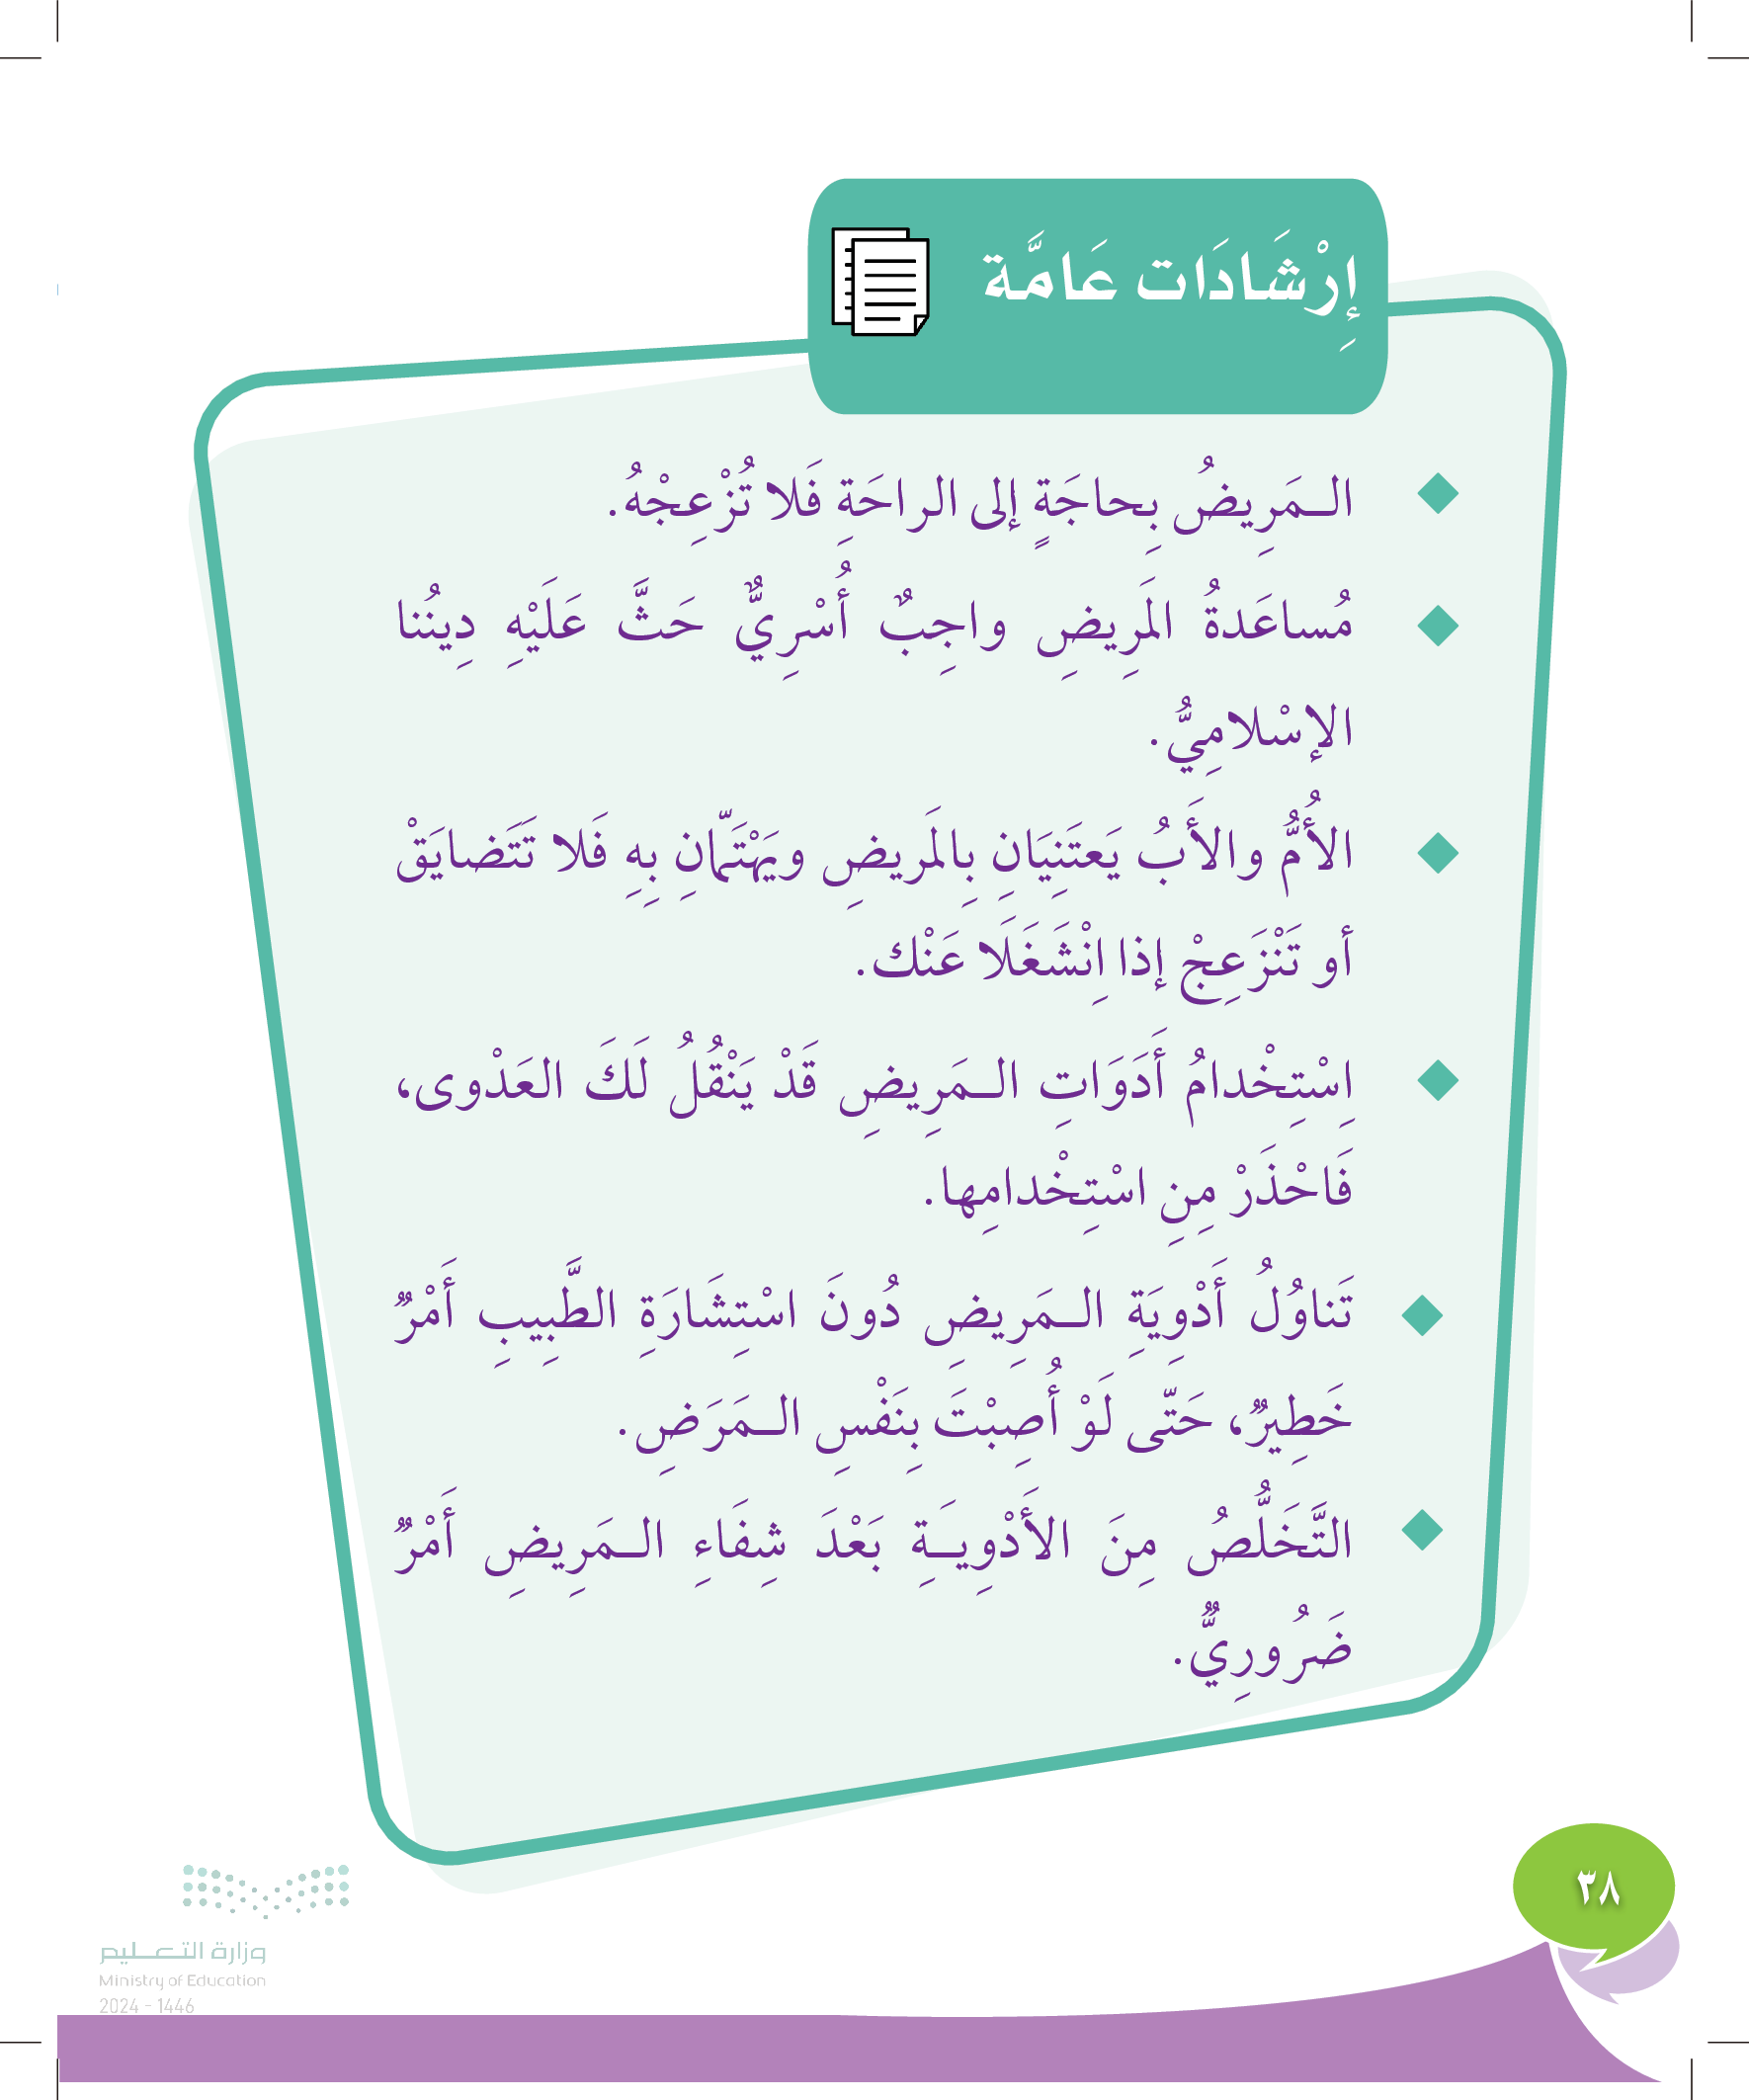 إِرْشَادَات عَامَّة
الـمَرِيضُ بِحاجَةٍ إلى الراحَةِ فَلا تُزْعِجْهُ.
مُساعَدةُ المَرِيضِ واجِبٌ أُسْرِيٌّ حَثَّ عَلَيْهِ دِينُنا
الإسْلامِيُّ.
الأُمُّ والأَبُ يَعتَنِيَانِ بِالمَريضِ ويَهْتَمّانِ بِهِ فَلا تَتَضايَقْ
أو تَنْزَعِجْ إذا اِنْشَغَلَا عَنْك.
اِسْتِخْدامُ أَدَوَاتِ الـمَرِيضِ قَدْ يَنْقُلُ لَكَ العَدْوى،
فَاحْذَرْ مِنِ اسْتِخْدامِها.
تَناوُلُ أَدْوِيَةِ الـمَرِيضِ دُونَ اسْتِشَارَةِ الطَّبِيبِ أَمْرٌ
خَطِيرٌ، حَتّى لَوْ أُصِبْتَ بِنَفْسِ الـمَرَضِ.
التَّخَلُّصُ مِنَ الأَدْوِيَـةِ بَعْدَ شِفَاءِ الـمَرِيضِ أَمْرٌ
ضَرُورِيٌّ.
٣٨
وزارة التعليم
Ministry of Education
2024 - 1446